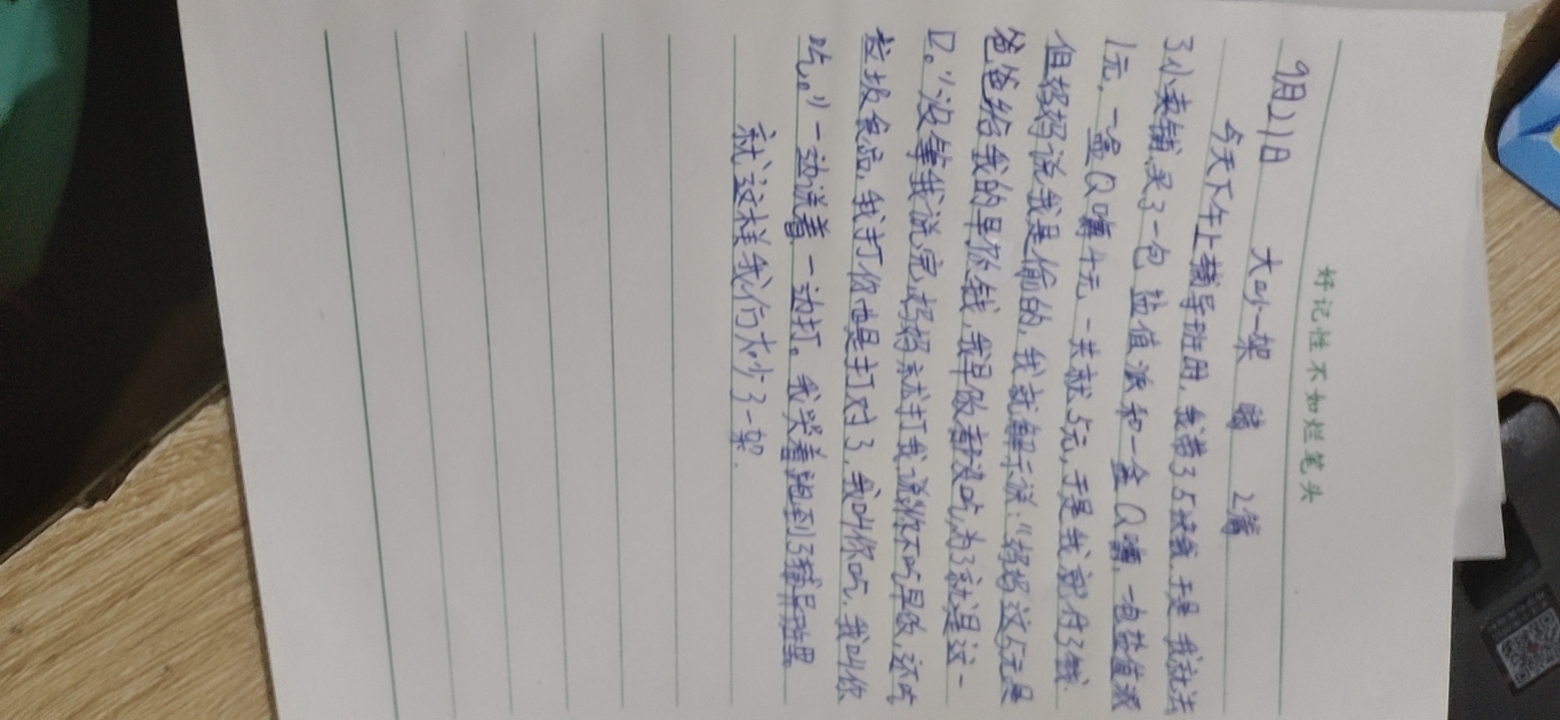 好记性不如烂笔头
9月21日 大吵一架 晴 2篇
今天下午上辅导班因,我带了5块钱,于是 我就去
了小卖铺,买了一包 盐值派和一盒Q嘴,一包盐值派
1元,一盒Q嘴4元,一共就5元,于是我就付了钱.
但妈妈说我是偷的,我就解示说:“妈妈这5元是
爸爸给我的早饭钱,我早饭都没吃,为了就是这一
口。”没等我说完,妈妈就打我说:你不吃早饭,还吃
垃圾食品,我打你也是打对了,我叫你吃,我叫你
吃。”一边说着 一边打。我哭着跑到了辅导班里
就这样我们大吵了一架.